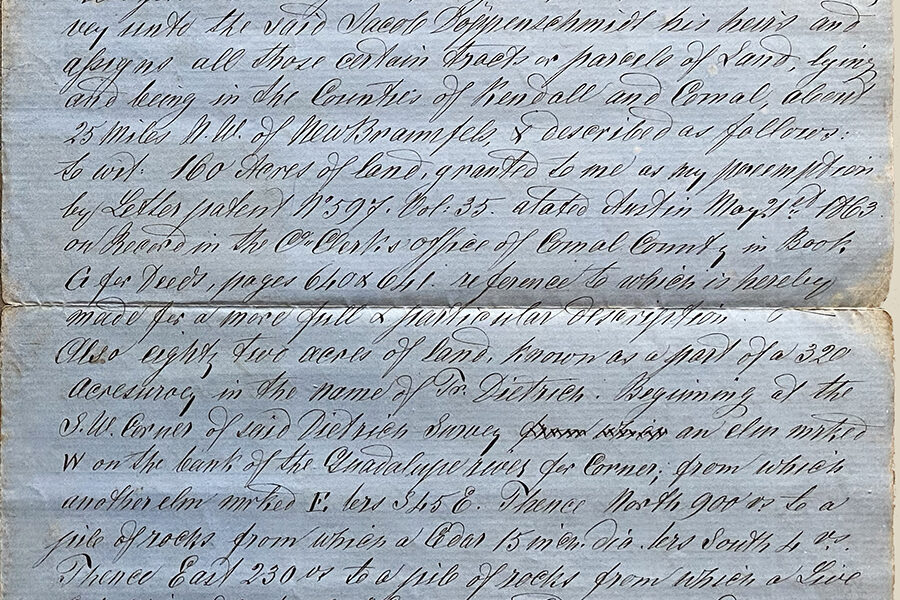 vey unto the said Jacob Döppenschmidt his heirs and
assigns all those certain tracts or parcels of Land, lying
and being in the Counties of Kendall and Comal, about
25 Miles N.W. of New Braunfels, & described as follows:
to wit: 160 Acres of land, granted to me as my preemption
by Letter patent No 597. Vol: 35. dated Austin May 21st 1863.
on Record in the Co Clerks office of Comal County in Book
G for Deeds, pages 640 & 641. reference to which is hereby
made for a more full & particular description.
Also eighty two acres of land, known as a part of a 320
acre survey in the name of Fr. Dietrich. Beginning at the
S.W. Corner of said Dietrich Survey from which an elm mrked
W on the bank of the Guadalupe river for Corner, from which
another elm mrked E brs S45 E. Thence North 900 vs to a
pile of rocks from which a Cedar 15 inch. dia. brs South 4 vs.
Thence East 230 vs to a pile of rocks from which a Live